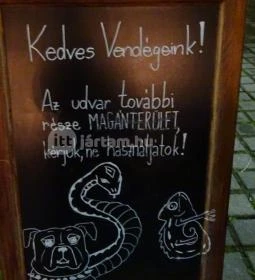 Kedves Vendégeink!
Az udvar további
része MAGÁNTERÜLET,
kérjük, ne használjátok!
itt jártam.hu